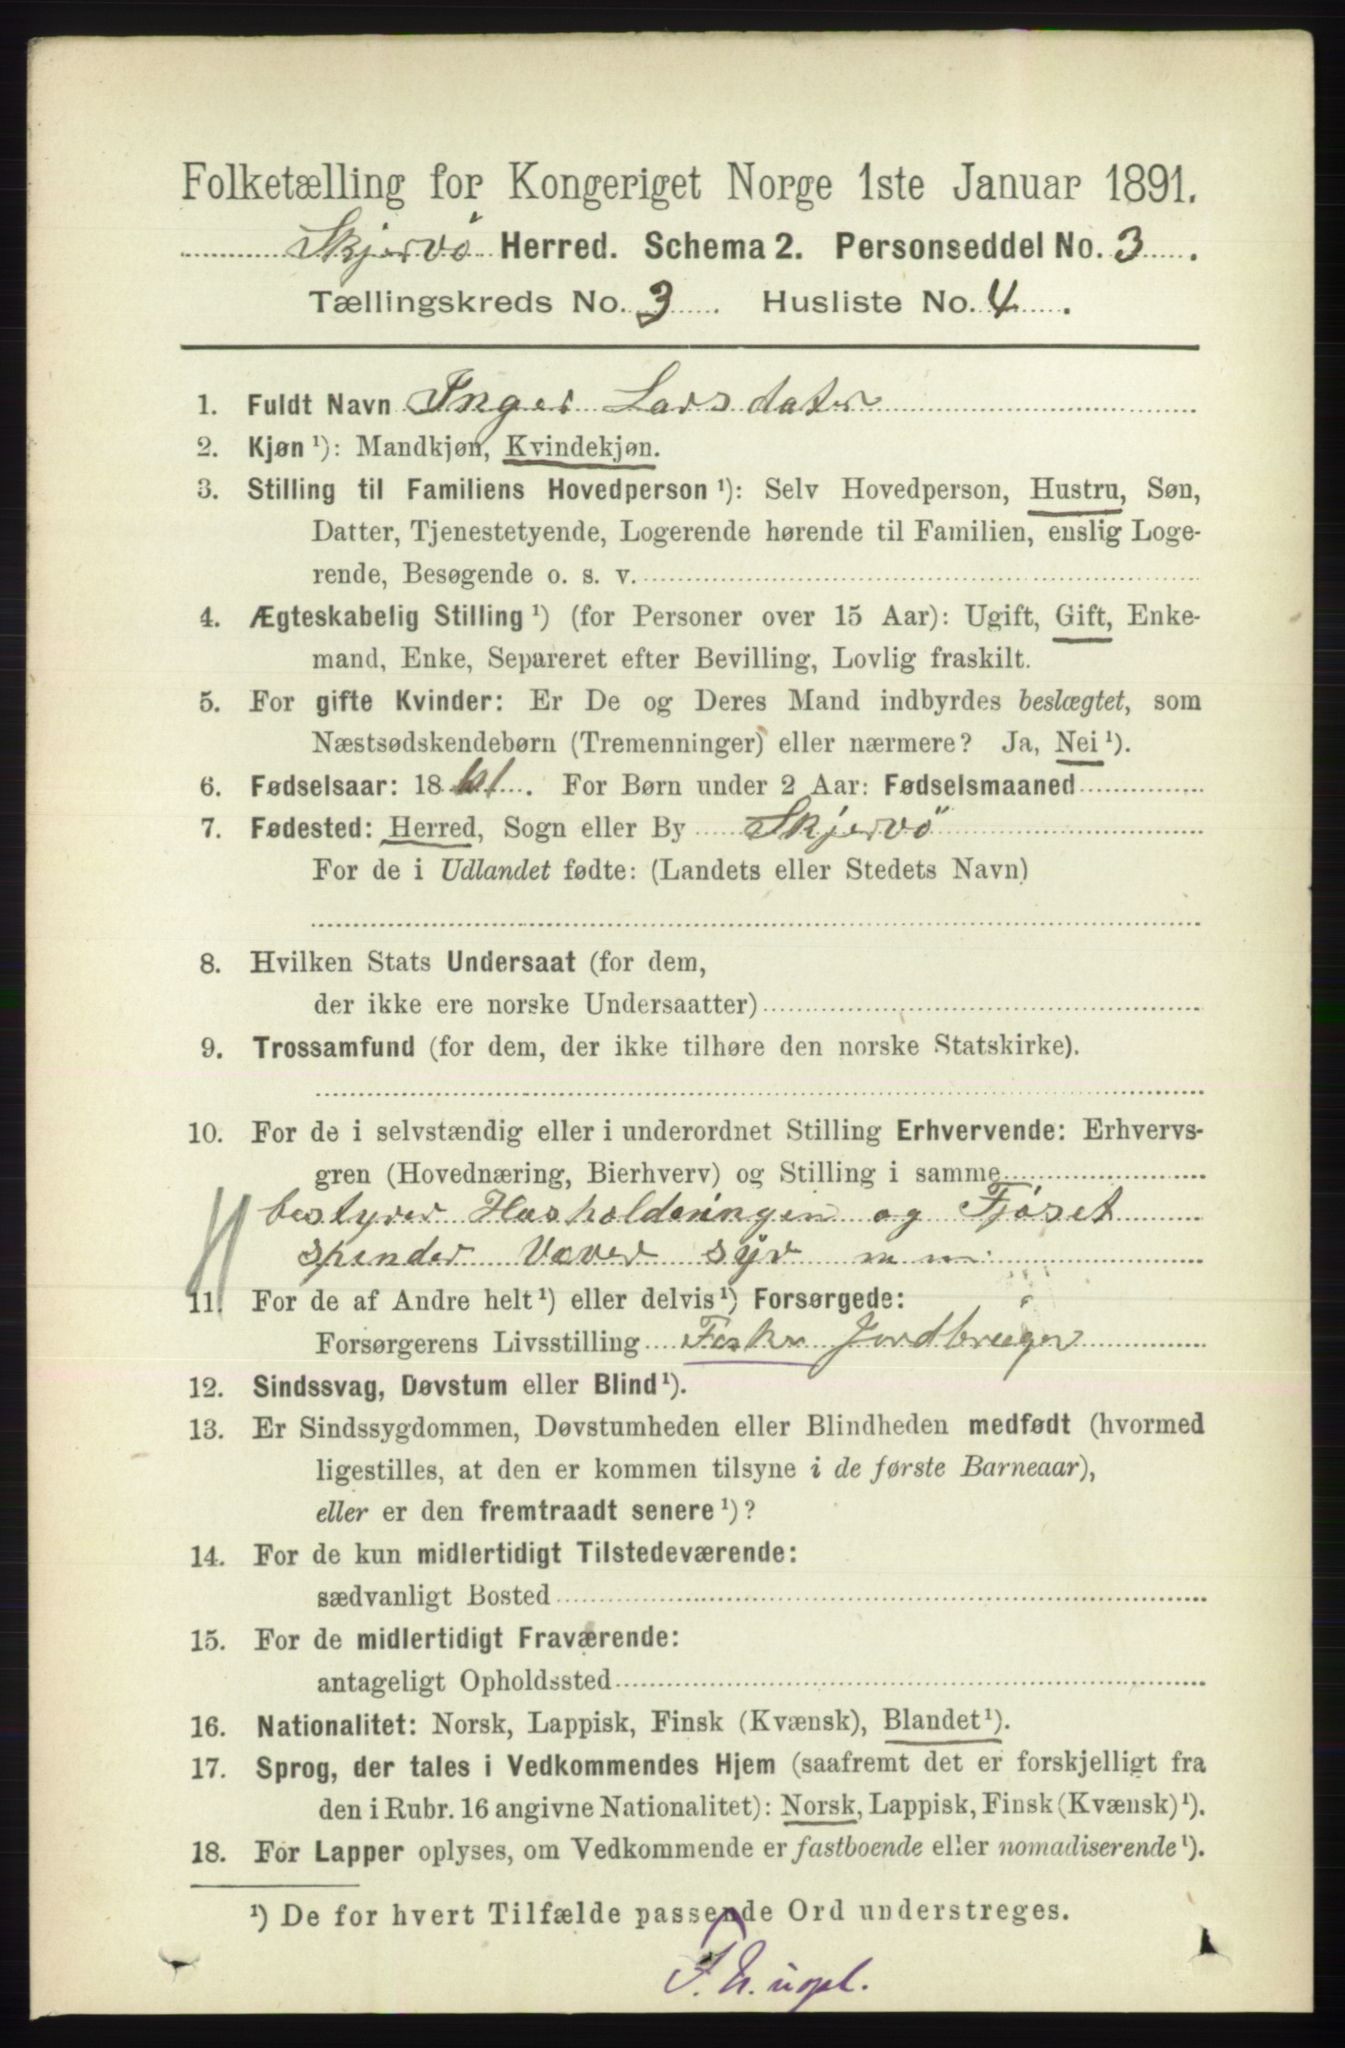 Folketælling for Kongeriget Norge 1ste Januar 1891.
Skjervö Herred. Schema 2. Personseddel No. 3.
Tællingskreds No. 3. Husliste No. 4.
1. Fuldt Navn Inger Larsdater
2. Kjøn ¹): Mandkjøn, Kvindekjøn.
3. Stilling til Familiens Hovedperson ¹): Selv Hovedperson, Hustru, Søn,
Datter, Tjenestetyende, Logerende hørende til Familien, enslig Loge-
rende, Besøgende o. s. v.
4. Ægteskabelig Stilling ¹) (for Personer over 15 Aar): Ugift, Gift, Enke-
mand, Enke, Separeret efter Bevilling, Lovlig fraskilt.
5. For gifte Kvinder: Er De og Deres Mand indbyrdes beslægtet, som
Næstsødskendebørn (Tremenninger) eller nærmere? Ja, Nei ¹).
6. Fødselsaar: 18 61. For Børn under 2 Aar: Fødselsmaaned
7. Fødested: Herred, Sogn eller By Skjervö
For de i Udlandet fødte: (Landets eller Stedets Navn)
8. Hvilken Stats Undersaat (for dem,
der ikke ere norske Undersaatter)
9. Trossamfund (for dem, der ikke tilhøre den norske Statskirke).
10. For de i selvstændig eller i underordnet Stilling Erhvervende: Erhvervs-
gren (Hovednæring, Bierhverv) og Stilling i samme
bestyrer Husholdningen og Fjöset
spinder Væver syr m m:
11. For de af Andre helt ¹) eller delvis ¹) Forsørgede:
Forsørgerens Livsstilling Fisker Jordbruger
12. Sindssvag, Døvstum eller Blind ¹).
13. Er Sindssygdommen, Døvstumheden eller Blindheden medfødt (hvormed
ligestilles, at den er kommen tilsyne i de første Barneaar),
eller er den fremtraadt senere ¹)?
14. For de kun midlertidigt Tilstedeværende:
sædvanligt Bosted
15. For de midlertidigt Fraværende:
antageligt Opholdssted
16. Nationalitet: Norsk, Lappisk, Finsk (Kvænsk), Blandet ¹).
17. Sprog, der tales i Vedkommendes Hjem (saafremt det er forskjelligt fra
den i Rubr. 16 angivne Nationalitet): Norsk, Lappisk, Finsk (Kvænsk) ¹).
18. For Lapper oplyses, om Vedkommende er fastboende eller nomadiserende ¹).
¹) De for hvert Tilfælde passende Ord understreges.